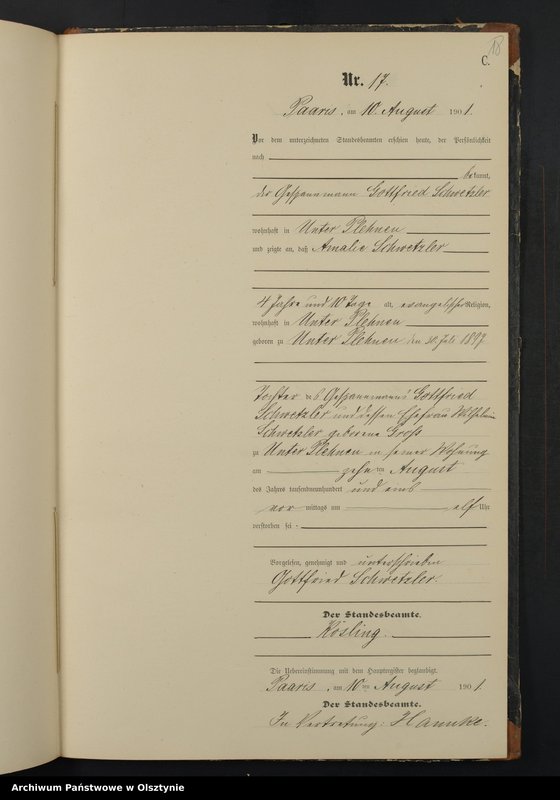 18
C.
Nr. 17.
Paaris, am 10. August 1901.
Vor dem unterzeichneten Standesbeamten erschien heute, der Persönlichkeit
nach
bekannt,
der Gespannmann Gottfried Schwetzler
wohnhaft in Unter Plehnen
und zeigte an, daß Amalie Schwetzler
4 Jahre und 10 Tage alt, evangelischer Religion,
wohnhaft in Unter Plehnen
geboren zu Unter Plehnen den 30. Juli 1897
Tochter des Gespannmanns Gottfried
Schwetzler und dessen Ehefrau Wilhelmine
Schwetzler geborene Groß
zu Unter Plehnen in seiner Wohnung
am zehnten August
des Jahres tausendneunhundert und eins
vor mittags um elf Uhr
verstorben sei
Vorgelesen, genehmigt und unterschrieben
Gottfried Schwetzler.
Der Standesbeamte.
Kösling.
Die Uebereinstimmung mit dem Hauptregister beglaubigt.
Paaris, am 10ten August 1901.
Der Standesbeamte.
In Vertretung: Hannke.
Archiwum Państwowe w Olsztynie